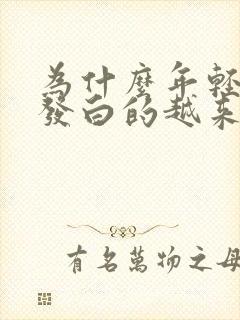 為什麼年輕
發白的越來
有名萬物之母